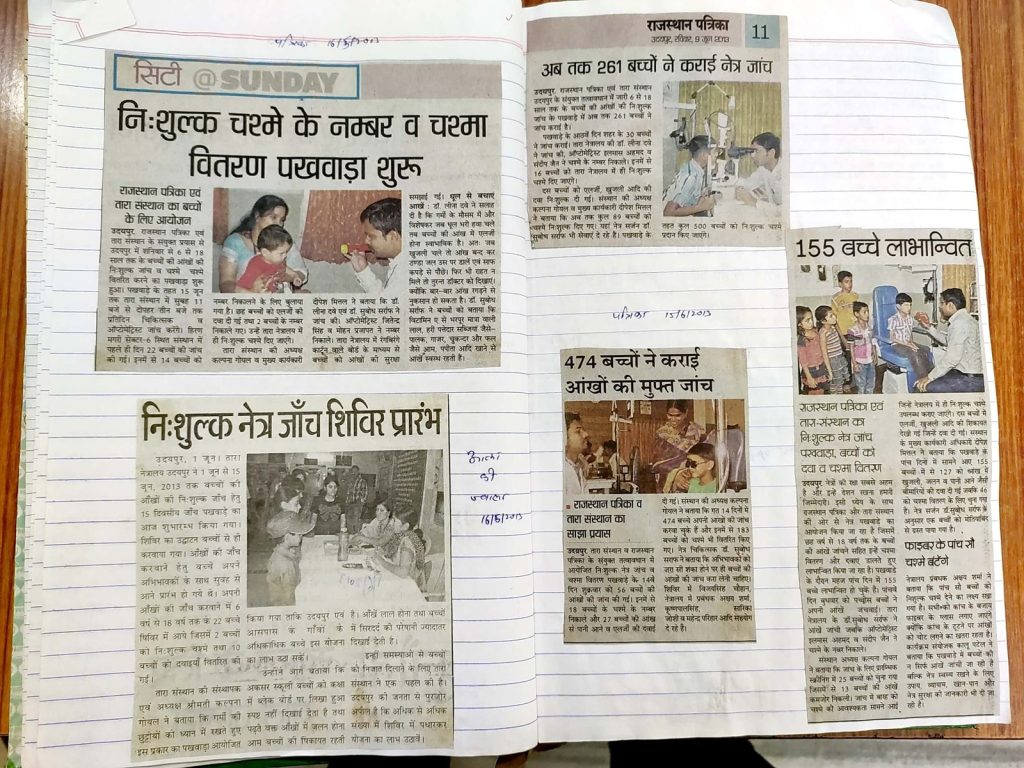 पत्रिका 16/6/2013
सिटी @SUNDAY
निःशुल्क चश्मे के नम्बर व चश्मा
वितरण पखवाड़ा शुरू
राजस्थान पत्रिका एवं
तारा संस्थान का बच्चों
के लिए आयोजन
उदयपुर. राजस्थान पत्रिका एवं
तारा संस्थान के संयुक्त प्रयास से
उदयपुर में शनिवार से 6 से 18
साल तक के बच्चों की आंखों की
निःशुल्क जांच व चश्मे
वितरित करने का पखवाड़ा शुरू
हुआ। पखवाड़े के तहत 15 जून
तक तारा संस्थान में सुबह 11
बजे से दोपहर तीन बजे तक
प्रतिदिन चिकित्सक व
ऑप्टोमेट्रिस्ट जांच करेंगे। हिरण
मगरी सेक्टर-6 स्थित संस्थान में
पहले ही दिन 22 बच्चों की जांच
की गई। इनमें से 14 बच्चों को
नम्बर निकालने के लिए बुलाया
गया है। छह बच्चों को एलर्जी की
दवा दी गई तथा 2 बच्चों के नम्बर
निकाले गए। उन्हें तारा नेत्रालय में
ही निःशुल्क चश्मे दिए जाएंगे।
तारा संस्थान की अध्यक्ष
कल्पना गोयल व मुख्य कार्यकारी
दीपेश मित्तल ने बताया कि डॉ.
लीना दवे एवं डॉ. सुबोध सर्राफ ने
जांच की। ऑप्टोमेट्रिस्ट जितेन्द्र
सिंह व मोहन प्रजापत ने नम्बर
निकाले। तारा नेत्रालय में रंगबिरंगे
कार्टून वाले बोर्ड के माध्यम से
बच्चों को आंखों की सुरक्षा
समझाई गई। धूल से बचाएं
आंखें : डॉ. लीना दवे ने सलाह
दी है कि गर्मी के मौसम में और
विशेषकर जब धूल भरी हवा चले
तब बच्चों की आंख में एलर्जी
होना स्वाभाविक है। अतः जब
खुजली चले तो आंख बन्द कर
ठण्डा जल उस पर डालें एवं साफ
कपड़े से पौंछें। फिर भी राहत न
मिले तो तुरन्त डॉक्टर को दिखाएं।
क्योंकि बार-बार आंख रगड़ने से
नुकसान हो सकता है। डॉ. सुबोध
सर्राफ ने बच्चों को बताया कि
विटामिन ए से भरपूर मात्रा वाली
लाल, हरी पत्तेदार सब्जियां जैसे-
पालक, गाजर, चुकन्दर और फल
जैसे आम, पपीता आदि खाने से
आंखें स्वस्थ रहती है।
निःशुल्क नेत्र जाँच शिविर प्रारंभ
उदयपुर, 1 जून। तारा
नेत्रालय उदयपुर में 1 जून से 15
जून, 2013 तक बच्चों की
आँखों की निःशुल्क जाँच हेतु
15 दिवसीय जाँच पखवाड़ा का
आज शुभारम्भ किया गया।
शिविर का उद्घाटन बच्चों से ही
करवाया गया। आँखों की जाँच
करवाने हेतु बच्चे अपने
अभिभावकों के साथ सुबह से
आने प्रारंभ हो गये थे। अपनी
आँखों की जाँच करवाने में 6
वर्ष से 18 वर्ष तक के 22 बच्चे
शिविर में आये जिसमें 2 बच्चों
को निःशुल्क चश्मे तथा 10
बच्चों को दवाइयाँ वितरित की
गई।
तारा संस्थान की संस्थापक
एवं अध्यक्ष श्रीमती कल्पना
गोयल ने बताया कि गर्मी की
छुट्टियों को ध्यान में रखते हुए
इस प्रकार का पखवाड़ा आयोजित
किया गया ताकि उदयपुर एवं
आसपास के गाँवों के
अधिकाधिक बच्चे इस योजना
का लाभ उठा सकें।
उन्होंने आगे बताया कि
अकसर स्कूली बच्चों को कक्षा
में ब्लैक बोर्ड पर लिखा हुआ
स्पष्ट नहीं दिखाई देता है तथा
पढ़ते वक्त आँखों में जलन होना
आम बच्चों की शिकायत रहती
है। आँखें लाल होना तथा बच्चों
में सिरदर्द की परेशानी ज्यादातर
दिखाई देती है।
इन्हीं समस्याओं से बच्चों
को निजात दिलाने के लिए तारा
संस्थान ने एक पहल की है।
उदयपुर की जनता से पुरजोर
अपील है कि अधिक से अधिक
संख्या में शिविर में पधारकर
योजना का लाभ उठावें।
की
ज्वाला
16/6/2013
राजस्थान पत्रिका
उदयपुर, रविवार, 9 जून 2013
11
अब तक 261 बच्चों ने कराई नेत्र जांच
उदयपुर. राजस्थान पत्रिका एवं तारा संस्थान
उदयपुर के संयुक्त तत्वावधान में जारी 6 से 18
साल तक के बच्चों की आंखों की निःशुल्क
जांच के पखवाड़े में अब तक 261 बच्चों ने
जांच कराई है।
पखवाड़े के आठवें दिन शहर के 30 बच्चों
ने जांच कराई। तारा नेत्रालय की डॉ. लीना दवे
ने जांच की, ऑप्टोमेट्रिस्ट इलमास अहमद व
संदीप जैन ने चश्मे के नम्बर निकाले। इनमें से
16 बच्चों को तारा नेत्रालय में ही निःशुल्क
चश्मे दिए जाएंगे।
दस बच्चों को एलर्जी, खुजली आदि की
दवा निःशुल्क दी गई। संस्थान की अध्यक्ष
कल्पना गोयल व मुख्य कार्यकारी दीपेश मित्तल
ने बताया कि अब तक कुल 89 बच्चों को
चश्मे निःशुल्क दिए गए। यहां नेत्र सर्जन डॉ.
सुबोध सर्राफ भी सेवाएं दे रहे है। पखवाड़े के
तहत कुल 500 बच्चों को निःशुल्क चश्मे
प्रदान किए जाएंगे।
पत्रिका 15/6/2013
474 बच्चों ने कराई
आंखों की मुफ्त जांच
राजस्थान पत्रिका व
तारा संस्थान का
साझा प्रयास
उदयपुर तारा संस्थान व राजस्थान
पत्रिका के संयुक्त तत्वावधान में
आयोजित निःशुल्क नेत्र जांच व
चश्मा वितरण पखवाड़े के 14वें
दिन शुक्रवार को 56 बच्चों की
आंखों की जांच की गई। इनमें से
18 बच्चों के चश्मे के नम्बर
निकाले और 27 बच्चों की आंख
से पानी आने व एलर्जी की दवाई
दी गई। संस्थान की अध्यक्ष कल्पना
गोयल ने बताया कि गत 14 दिनों में
474 बच्चे अपनी आंखों की जांच
करवा चुके हैं और इनमें से 183
बच्चों को चश्मे भी वितरित किए
गए। नेत्र चिकित्सक डॉ. सुबोध
सर्राफ ने बताया कि अभिभावकों को
जरा सी शंका होने पर ही बच्चों की
आंखों की जांच करा लेनी चाहिए।
शिविर में विजयसिंह चौहान,
नेत्रालय में प्रबंधक अक्षय शर्मा,
कृष्णपालसिंह, सारिका
जोशी व महेन्द्र परिहार आदि सहयोग
दे रहे है।
155 बच्चे लाभान्वित
राजस्थान पत्रिका एवं
तारा-संस्थान का
निःशुल्क नेत्र जांच
पखवाड़ा, बच्चों को
दवा व चश्मा वितरण
उदयपुर नेत्रों की रक्षा सबसे अहम
है और इन्हें रोशन रखना हमारी
जिम्मेदारी। इसी ध्येय के साथ
राजस्थान पत्रिका और तारा संस्थान
की ओर से नेत्र पखवाड़े का
आयोजन किया जा रहा है जिसमें
छह वर्ष से 18 वर्ष तक के बच्चे
आंखें जांचने सहित इन्हें चश्मा
वितरण और दवाएं डालते हुए
लाभान्वित किया जा रहा है। पखवाड़े
के दौरान महज पांच दिन में 155
बच्चे लाभान्वित हो चुके हैं। पांचवें
दिन बुधवार को पच्चीस बच्चों ने
अपनी आंखें जंचवाई। तारा
नेत्रालय के डॉ.सुबोध सर्राफ ने
आंखें जांची जबकि ऑप्टोमेट्रिस्ट
इलमास अहमद व संदीप जैन ने
चश्मे के नम्बर निकाले।
संस्थान अध्यक्ष कल्पना गोयल
ने बताया कि जांच के लिए प्रारम्भिक
स्क्रीनिंग में 25 बच्चों को चुना गया
जिसमें से 13 बच्चों की आंखें
कमजोर निकली। जांच में बाद में
चश्मे की आवश्यकता सामने आई
जिन्हें नेत्रालय में ही निःशुल्क चश्मे
उपलब्ध कराए जाएंगे। दस बच्चों में
एलर्जी, खुजली आदि की शिकायत
देखी गई जिन्हें दवा दी गई। संस्थान
के मुख्य कार्यकारी अधिकारी दीपेश
मित्तल ने बताया कि पखवाड़े के
पांच दिनों में सामने आए 155
बच्चों में से 127 को आंख में
खुजली, जलन व पानी आने जैसी
बीमारियों की दवा दी गई जबकि 46
को चश्मा वितरण के लिए चुना गया।
नेत्र सर्जन डॉ.सुबोध सर्राफ के
अनुसार एक बच्चों को मोतियाबिंद
से ग्रस्त है।
फाइबर के पांच सौ
चश्मे बंटेंगे
नेत्रालय प्रबंधक अक्षय शर्मा ने
बताया कि पांच सौ बच्चों को
निःशुल्क चश्मे देने का लक्ष्य रखा
गया है। सभी को कांच के बजाय
फाइबर के ग्लास लगाए जाएंगे
क्योंकि कांच के टूटने पर आंखों
को चोट लगने का खतरा रहता है।
कार्यक्रम संयोजक कालू पटेल ने
बताया कि पखवाड़े में बच्चों की
न सिर्फ आंखें जांची जा रही है
बल्कि नेत्र स्वस्थ रखने के लिए
उपाय, व्यायाम, खान-पान और
नेत्र सुरक्षा की जानकारी भी दी जा
रही है।